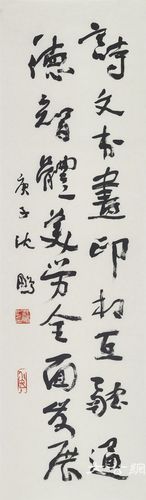 詩文書畫印相互融通
德智體美勞全面發展
庚子沈鵬